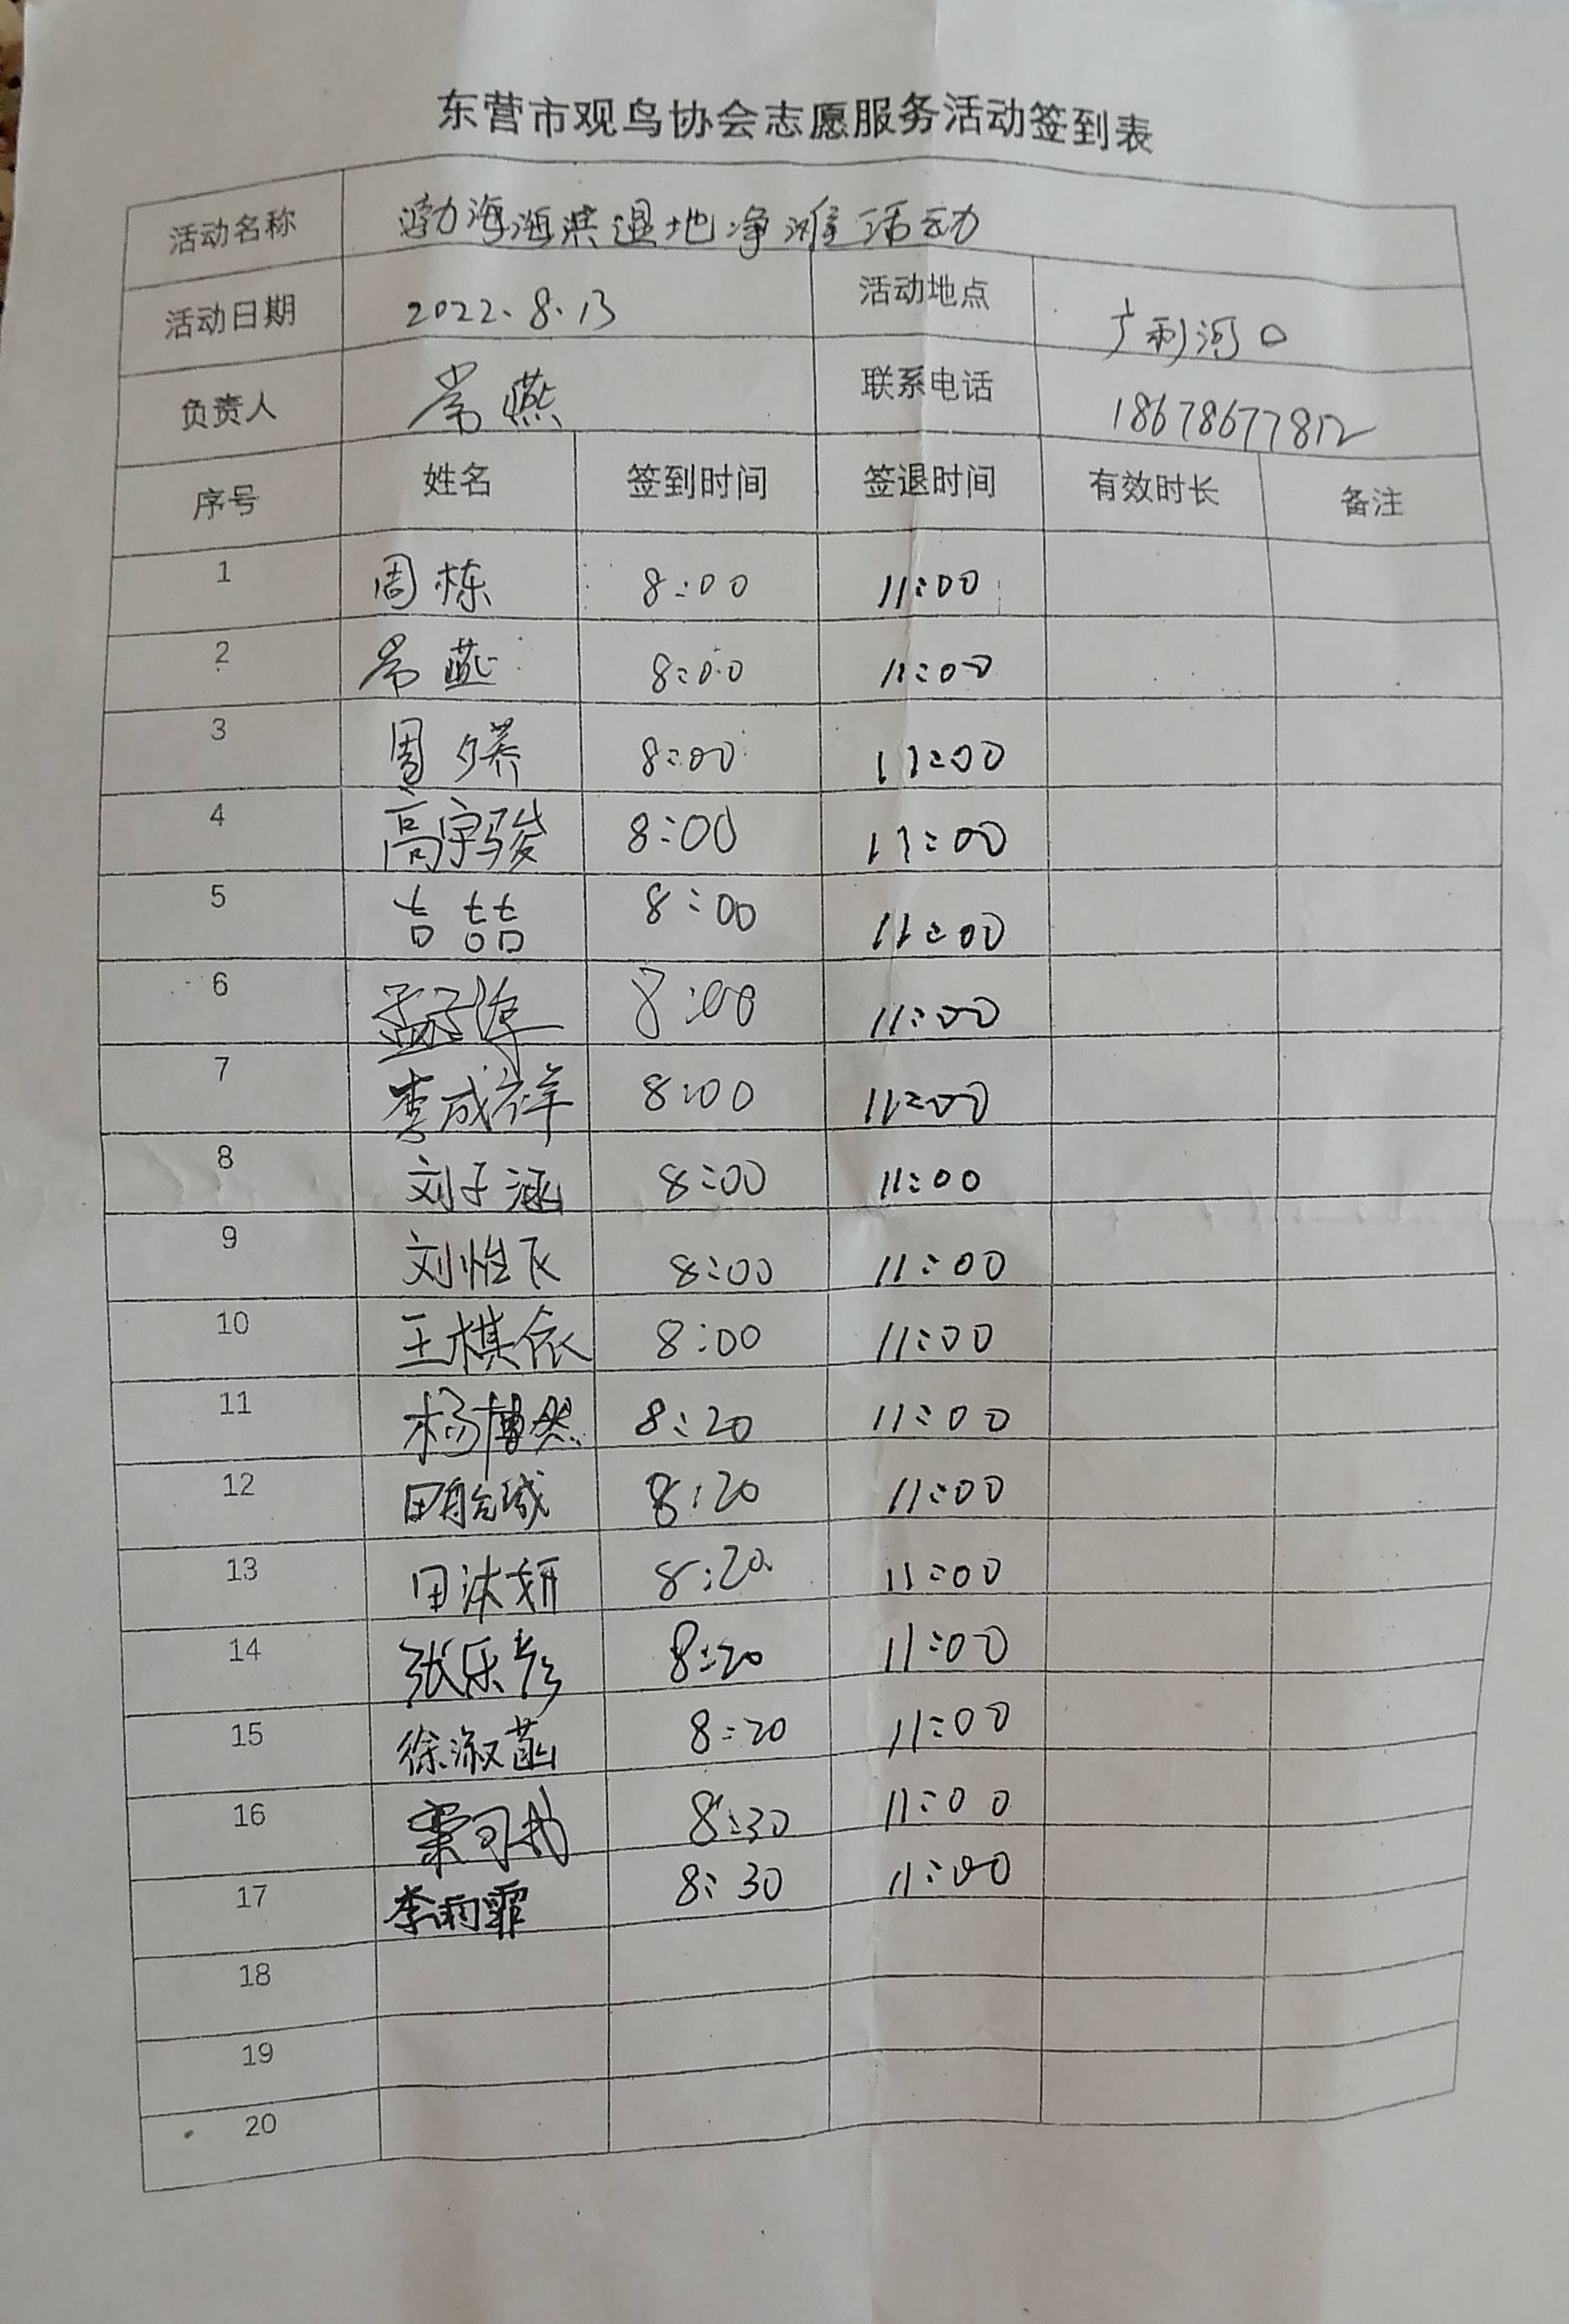 东营市观鸟协会志愿服务活动签到表
活动名称 渤海海滨湿地净滩活动
活动日期 2022.8.13 活动地点 广利河口
负责人 常燕 联系电话 18678677812
序号 姓名 签到时间 签退时间 有效时长 备注
1 周栋 8:00 11:00
2 常燕 8:00 11:00
3 周夕荞 8:00 11:00
4 高宇骏 8:00 11:00
5 吉喆 8:00 11:00
6 孟子淳 8:00 11:00
7 李成祥 8:00 11:00
8 刘子涵 8:00 11:00
9 刘恺飞 8:00 11:00
10 王棋依 8:00 11:00
11 杨博然 8:20 11:00
12 8:20 11:00
13 田沐妍 8:20 11:00
14 张乐彤 8:20 11:00
15 徐淑菡 8:20 11:00
16 8:30 11:00
17 李雨霏 8:30 11:00
18
19
20